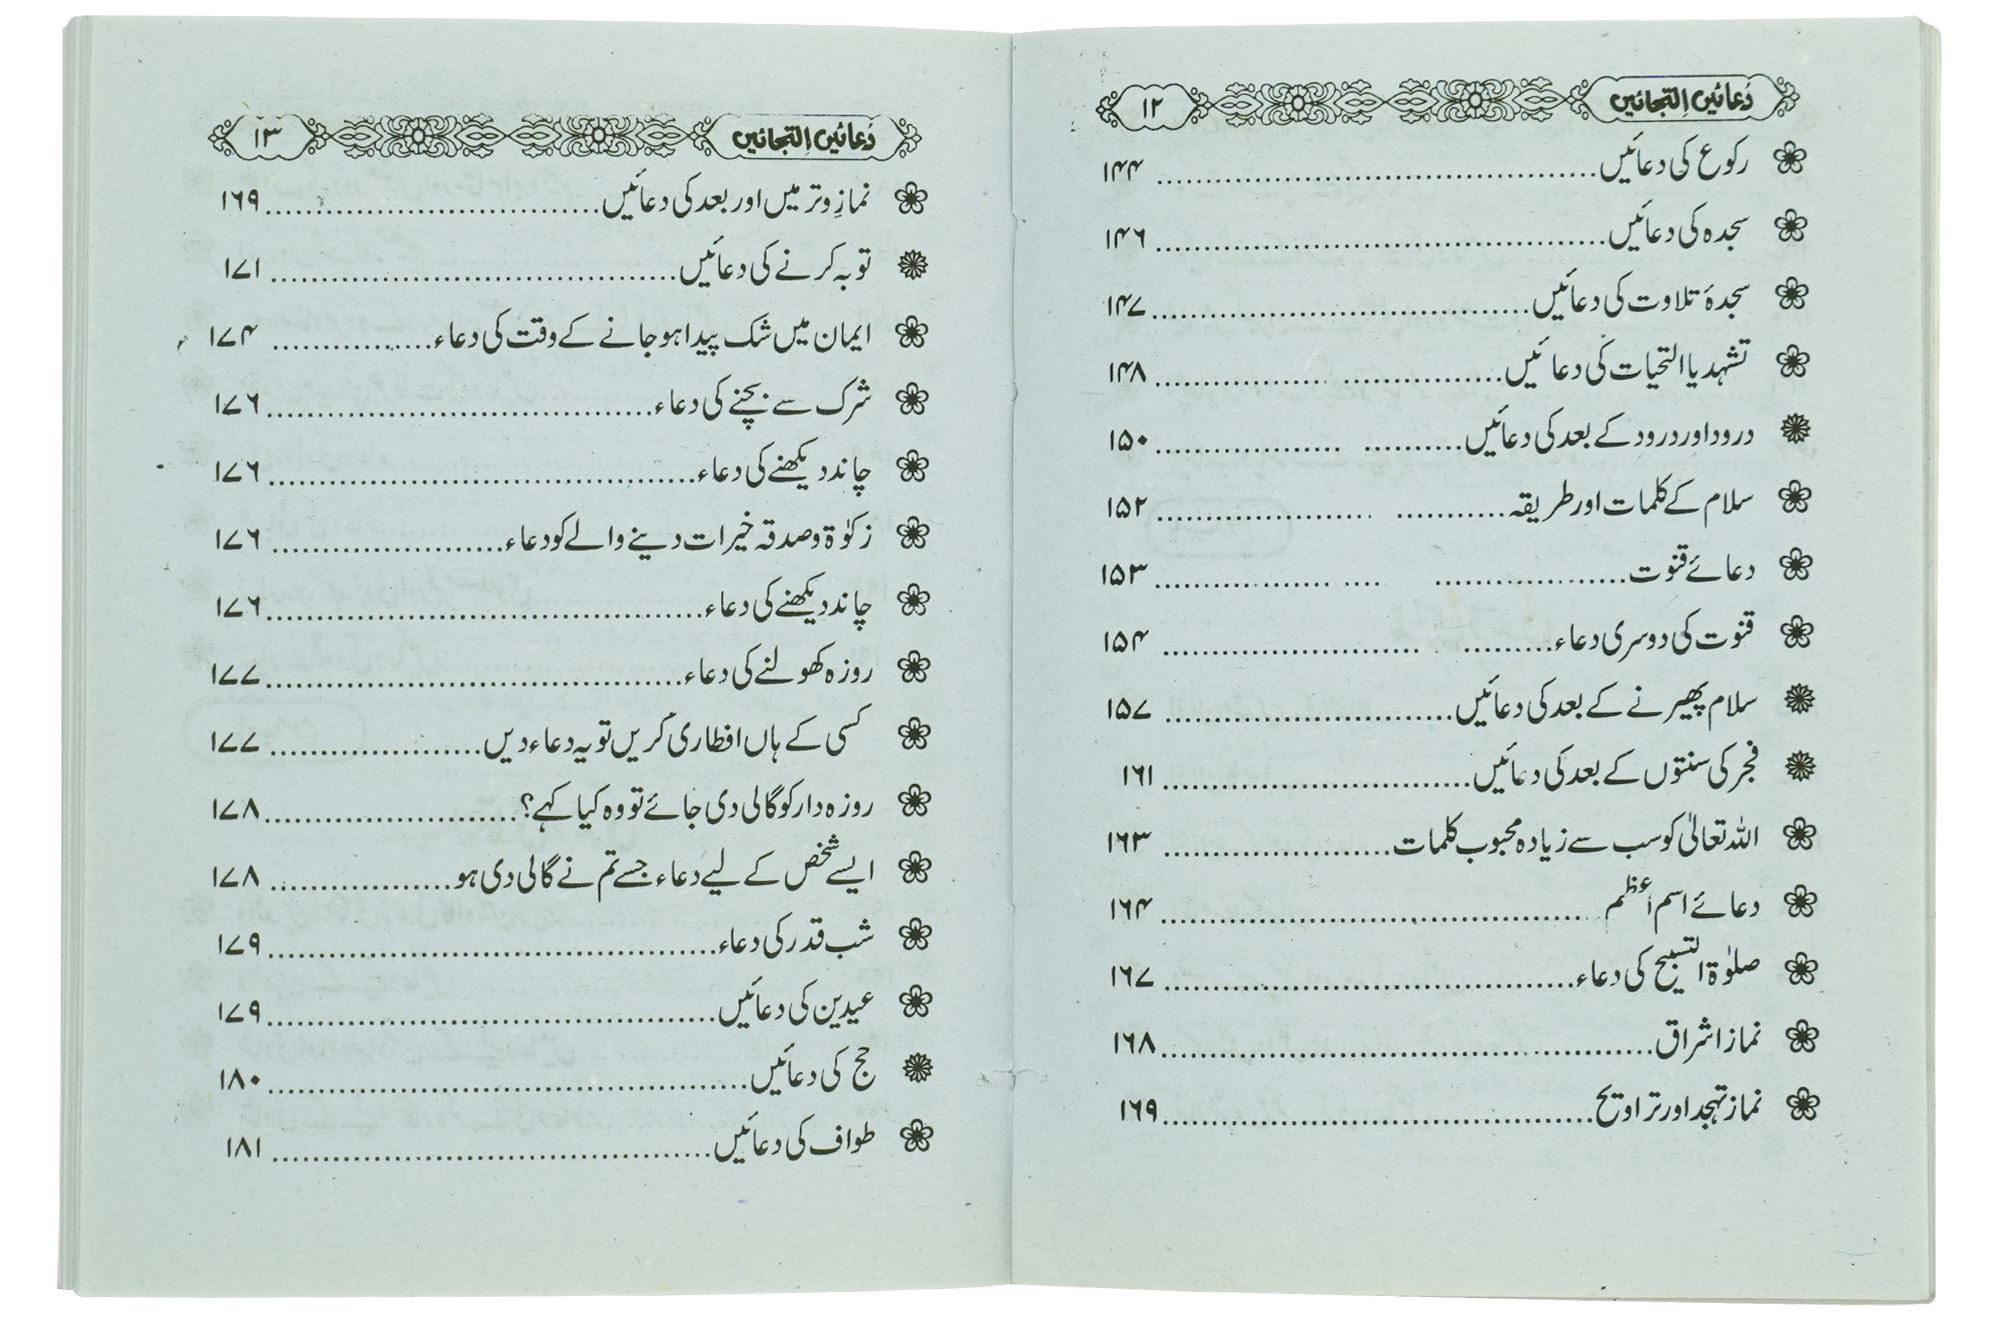 دُعائیں اِلتجائیں ۱۲
رکوع کی دعائیں ۱۴۴
سجدہ کی دعائیں ۱۴۶
سجدۂ تلاوت کی دعائیں ۱۴۷
تشہد یا التحیات کی دعائیں ۱۴۸
درود اور درود کے بعد کی دعائیں ۱۵۰
سلام کے کلمات اور طریقہ ۱۵۲
دعائے قنوت ۱۵۳
قنوت کی دوسری دعاء ۱۵۴
سلام پھیرنے کے بعد کی دعائیں ۱۵۷
فجر کی سنتوں کے بعد کی دعائیں ۱۶۱
اللہ تعالیٰ کو سب سے زیادہ محبوب کلمات ۱۶۳
دعائے اسم اعظم ۱۶۴
صلوٰۃ التسبیح کی دعاء ۱۶۷
نماز اشراق ۱۶۸
نماز تہجد اور تراویح ۱۶۹
دُعائیں اِلتجائیں ۱۳
نمازِ وتر میں اور بعد کی دعائیں ۱۶۹
توبہ کرنے کی دعائیں ۱۷۱
ایمان میں شک پیدا ہو جانے کے وقت کی دعاء ۱۷۴
شرک سے بچنے کی دعاء ۱۷۶
چاند دیکھنے کی دعاء ۱۷۶
زکوٰۃ و صدقہ خیرات دینے والے کو دعاء ۱۷۶
چاند دیکھنے کی دعاء ۱۷۶
روزہ کھولنے کی دعاء ۱۷۷
کسی کے ہاں افطاری کریں تو یہ دعاء دیں ۱۷۷
روزہ دار کو گالی دی جائے تو وہ کیا کہے؟ ۱۷۸
ایسے شخص کے لیے دعاء جسے تم نے گالی دی ہو ۱۷۸
شب قدر کی دعاء ۱۷۹
عیدین کی دعائیں ۱۷۹
حج کی دعائیں ۱۸۰
طواف کی دعائیں ۱۸۱